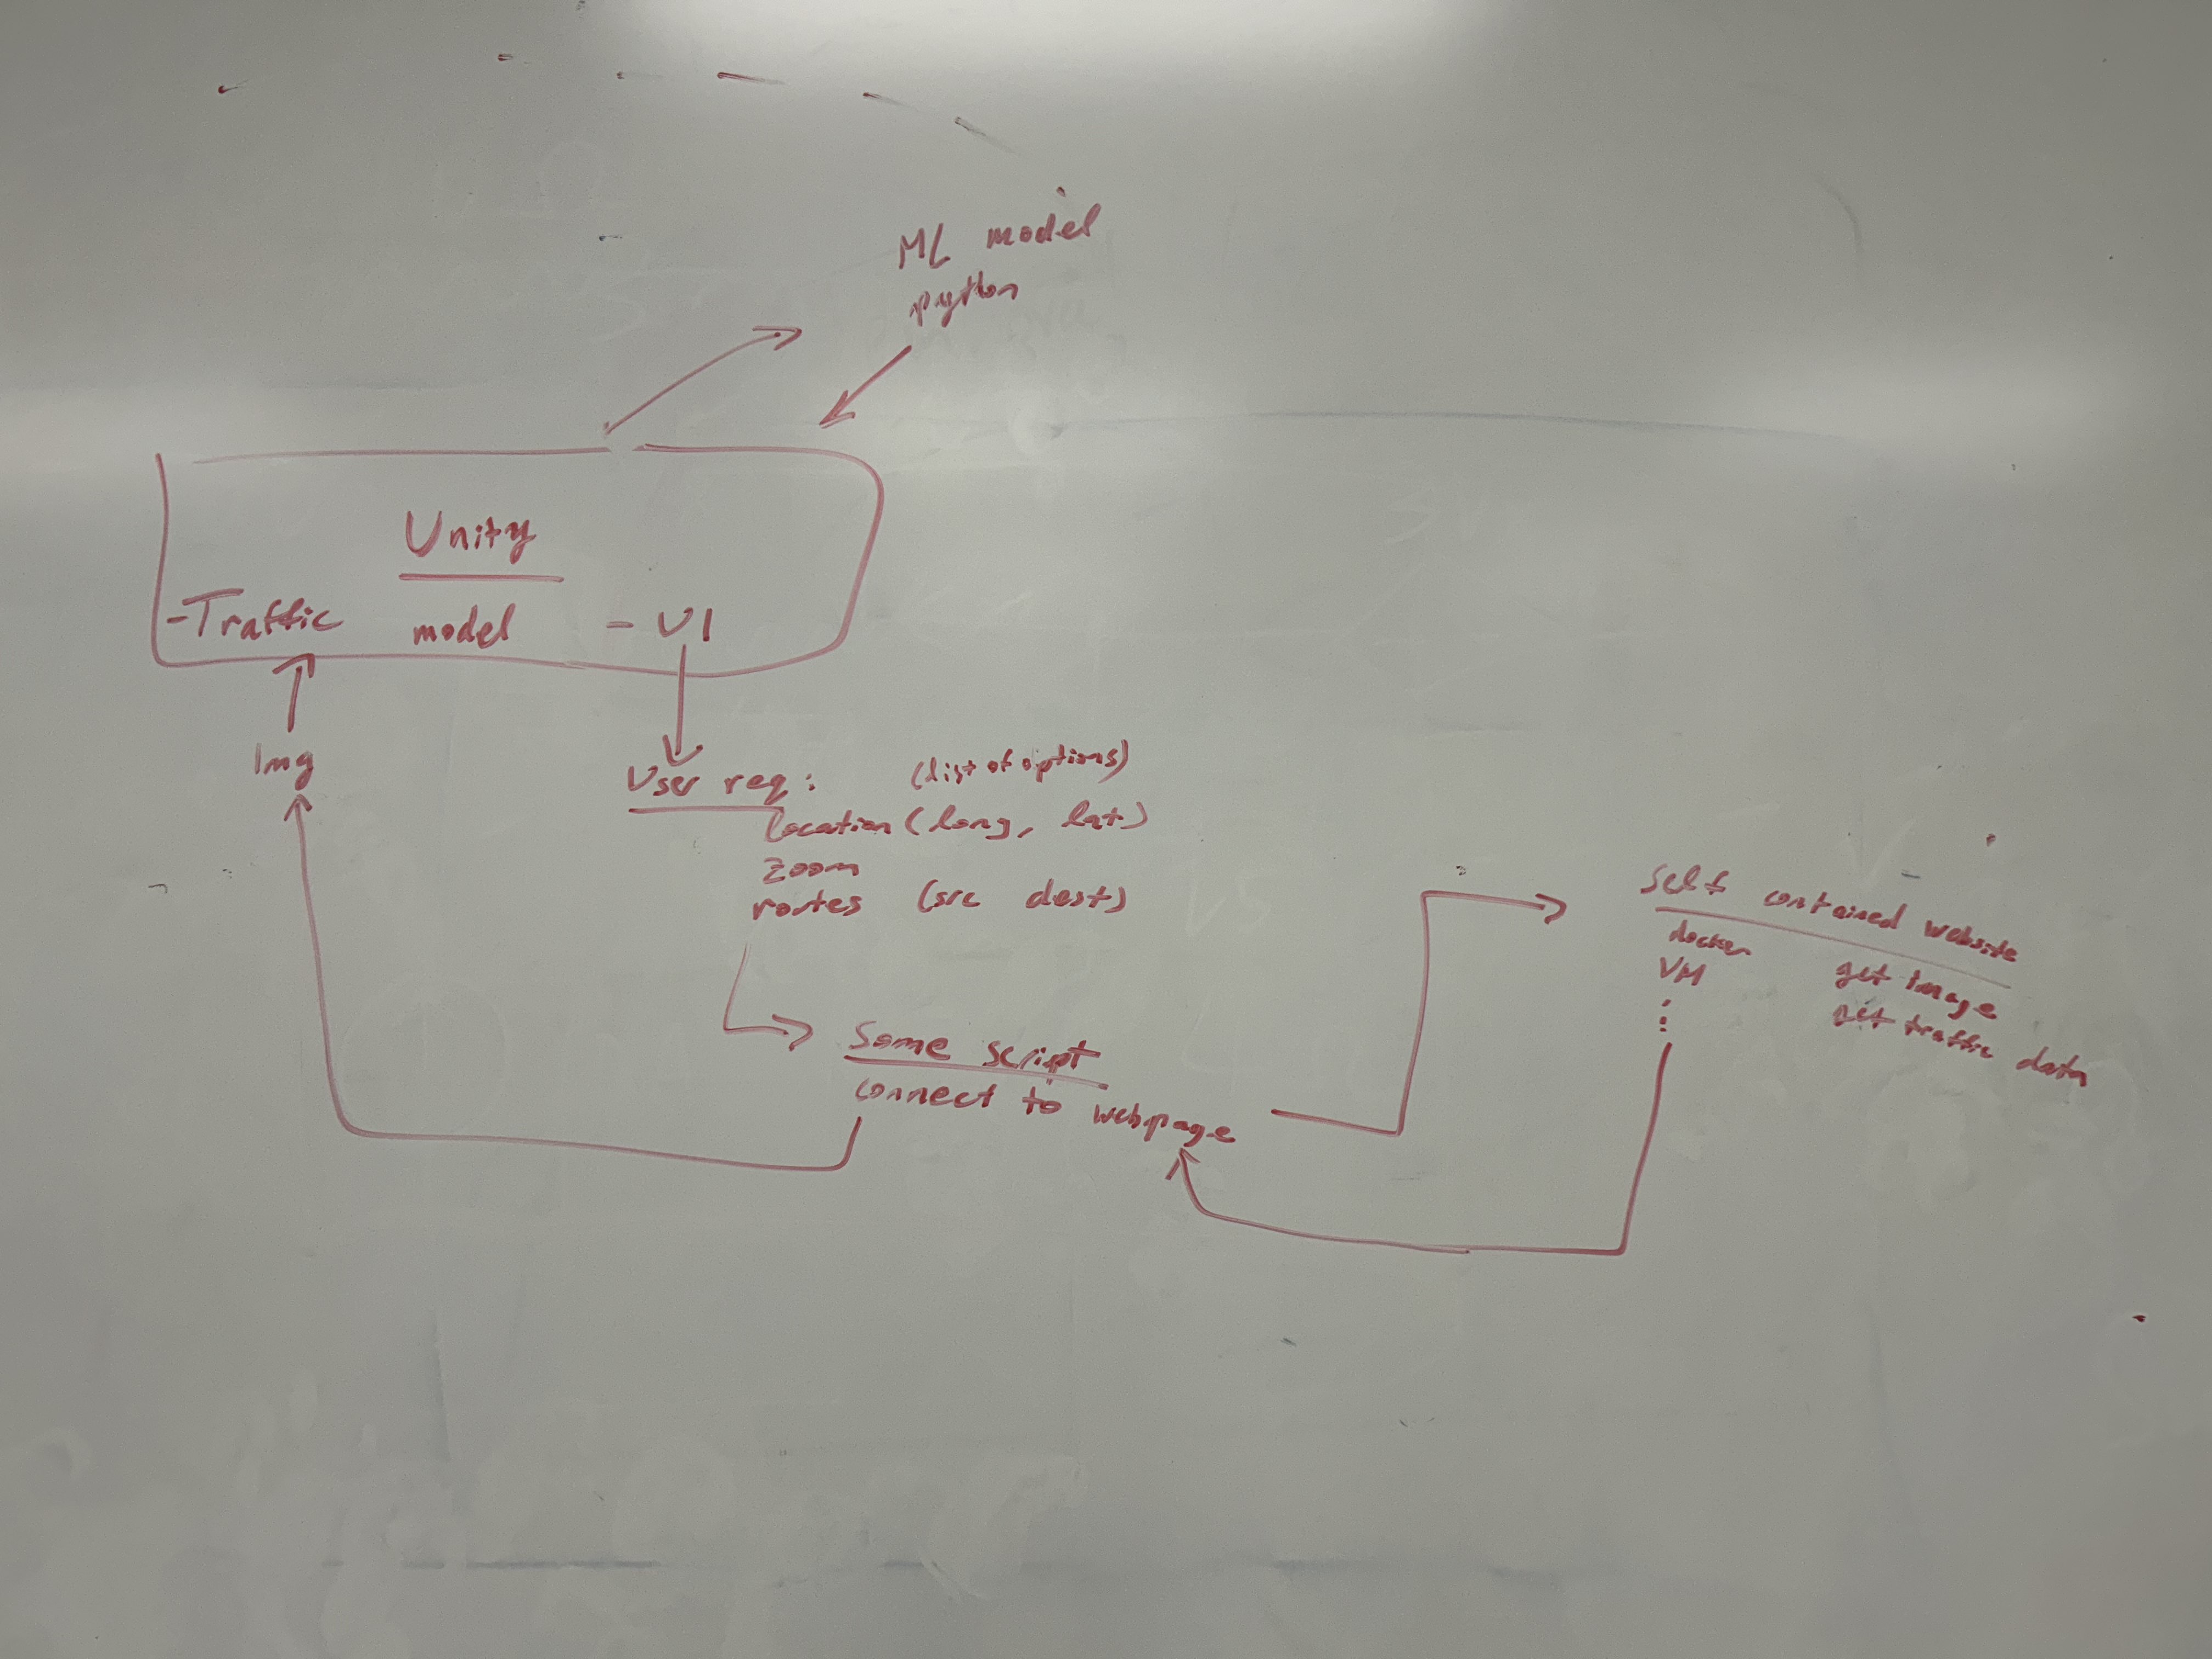 ML model
python
Unity
-Traffic model - UI
Img
User req: (list of options)
location (long, lat)
zoom
routes (src dest)
Some script
connect to webpage
self contained website
docker
VM
⋮
get image
get traffic data